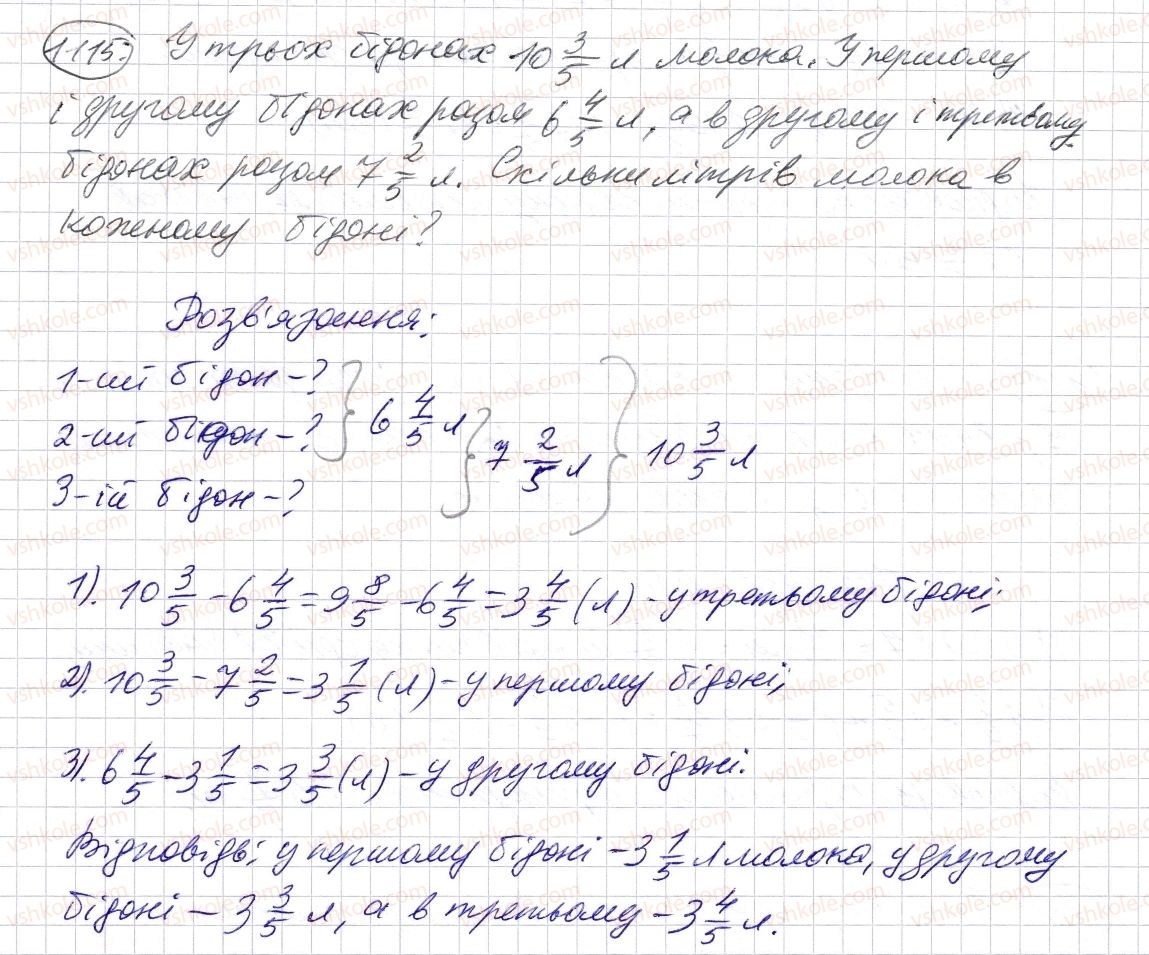 1115. У трьох бідонах 10 3/5 л молока. У першому
і другому бідонах разом 6 4/5 л, а в другому і третьому
бідонах разом 7 2/5 л. Скільки літрів молока в
кожному бідоні?
Розв'язання:
1-ий бідон - ? } 6 4/5 л
2-ий бідон - ? } 7 2/5 л } 10 3/5 л
3-ій бідон - ?
1). 10 3/5 - 6 4/5 = 9 8/5 - 6 4/5 = 3 4/5 (л) - у третьому бідоні;
2). 10 3/5 - 7 2/5 = 3 1/5 (л) - у першому бідоні;
3). 6 4/5 - 3 1/5 = 3 3/5 (л) - у другому бідоні.
Відповідь: у першому бідоні - 3 1/5 л молока, у другому
бідоні - 3 3/5 л, а в третьому - 3 4/5 л.
vshkole.com